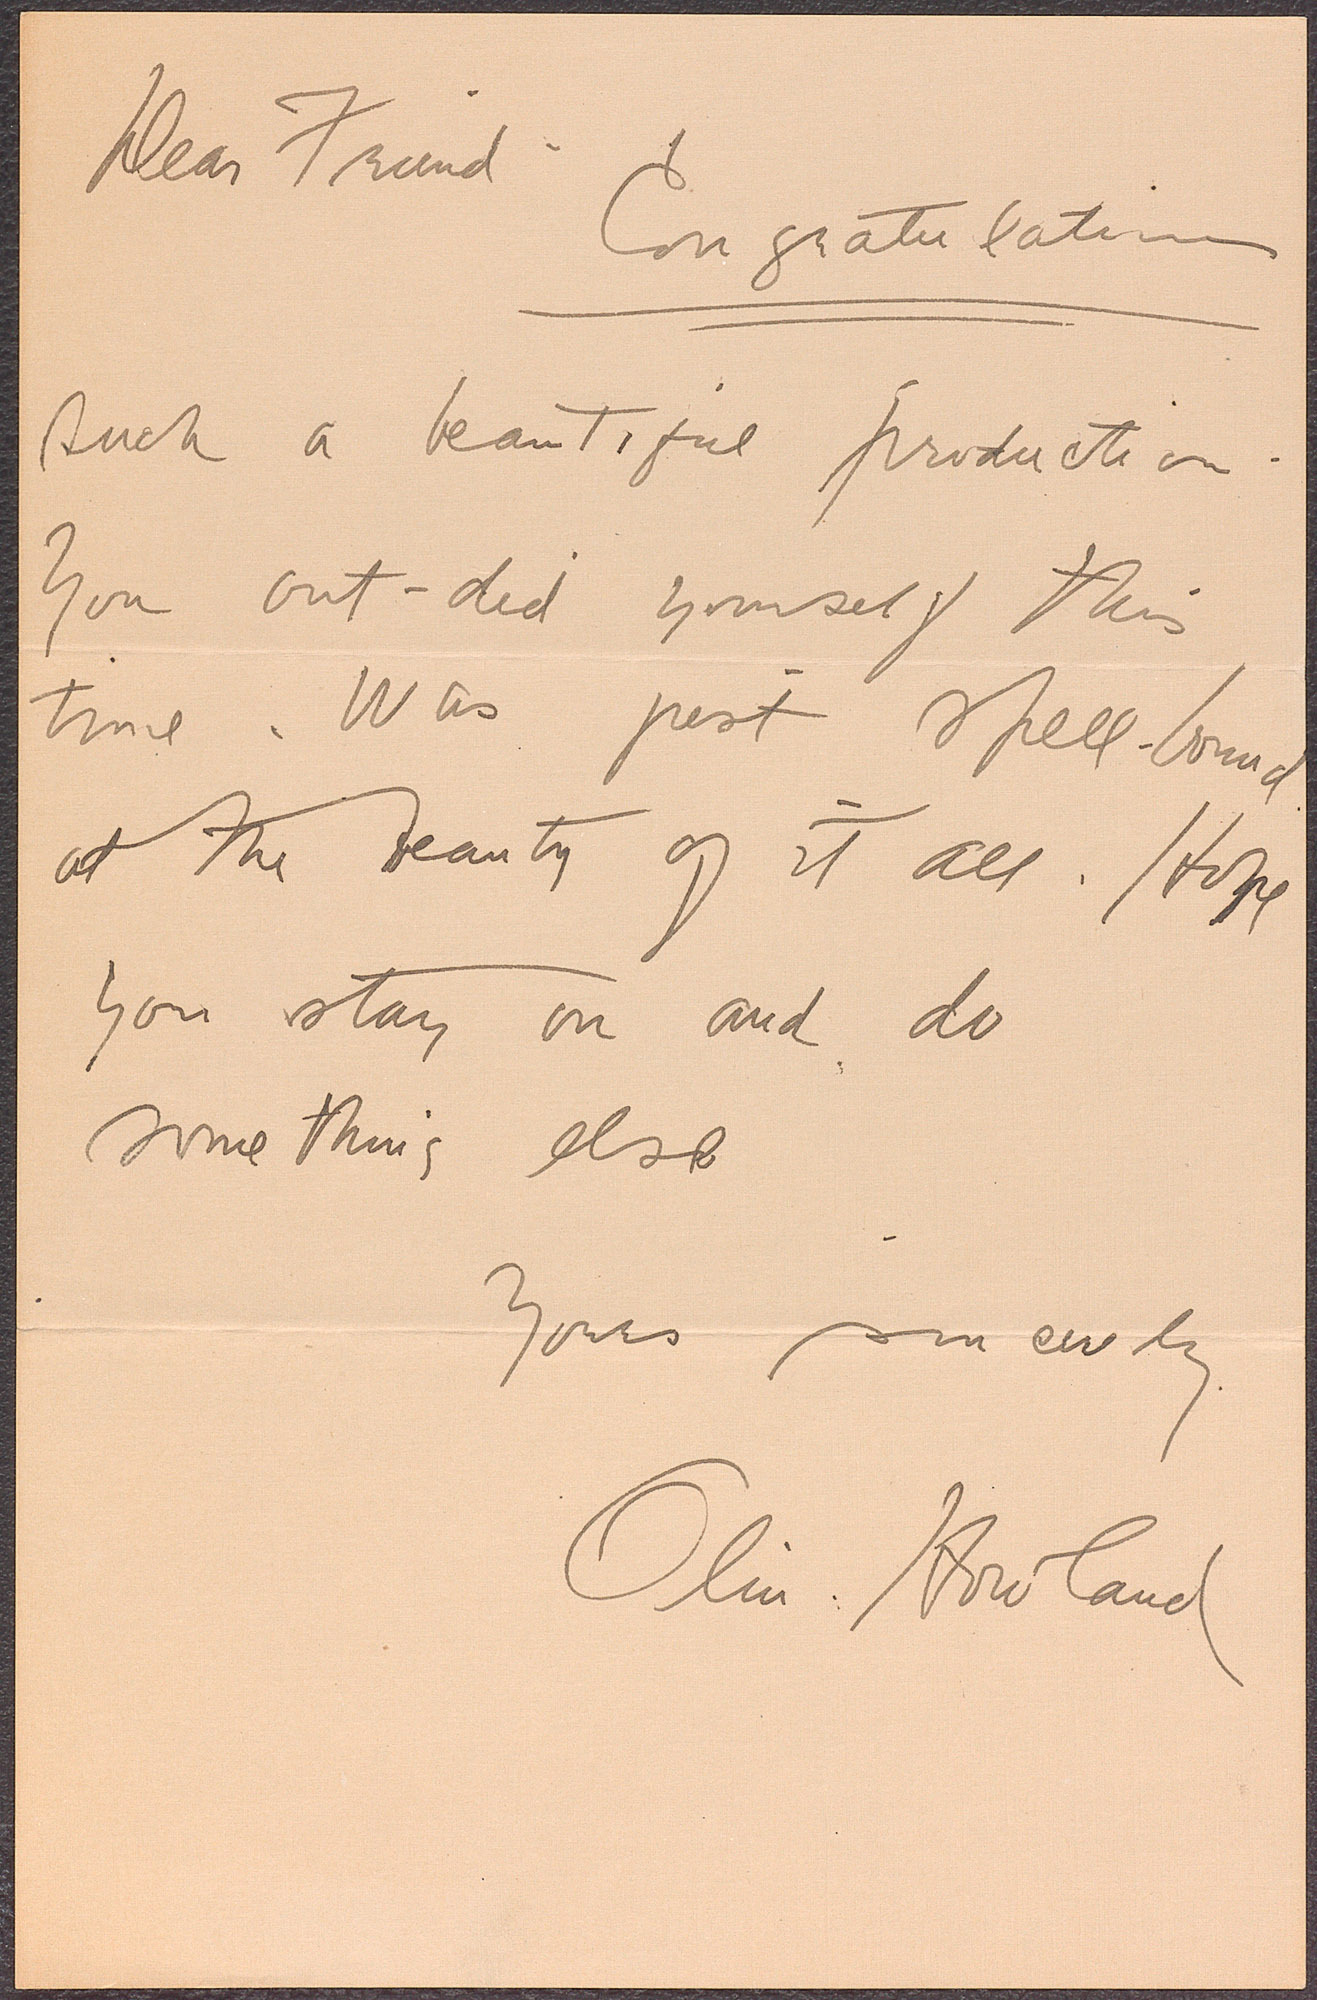 Dear Friend -
Congratulations
such a beautiful production -
You out-did yourself this
time. Was just spell-bound
at the beauty of it all. Hope
you stay on and do
something else
Yours sincerely
Olin Howland